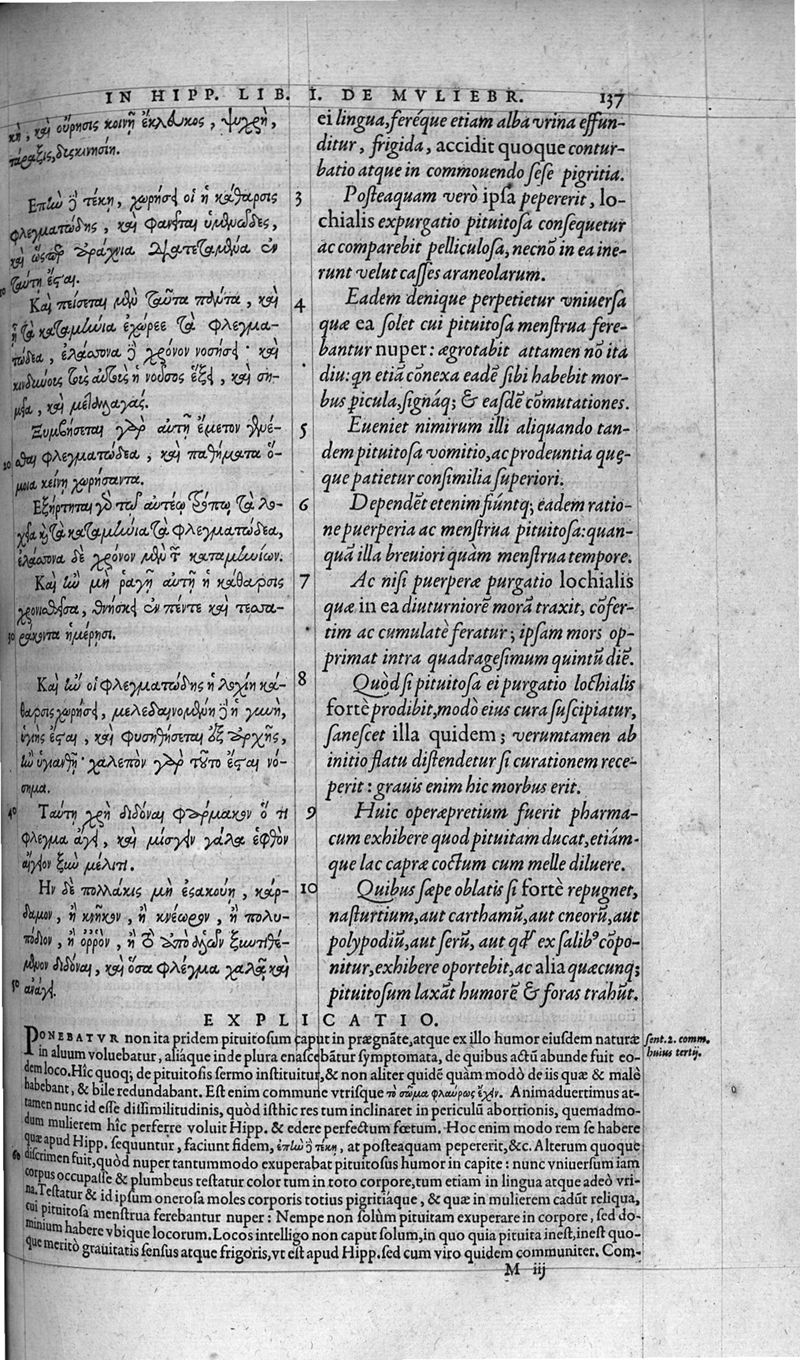 IN HIPP. LIB. I. DE MVLIEBR. 137
κὴ, καὶ οὔρησις κοινῇ ἔκλευκος, ψυχρὴ,
τάραξις, δυσκινησίη.
Ἐπὴν δὲ τέκῃ, χωρήσει οἱ ἡ κάθαρσις
φλεγματώδης, καὶ φανεῖται ὑμενώδες,
καὶ ὥσπερ ἀράχνια διατεταμένα ἐν
ταύτῃ ἔσται.
Καὶ πείσεται μὲν ταῦτα πάντα, καὶ
ἢ τὰ καταμήνια ἐχώρεε τὰ φλεγμα-
τώδεα, ἐλάσσονα δὲ χρόνον νοσήσει· καὶ
κινδύνοις τοῖς αὐτοῖς ἡ νοῦσος ἕξει, καὶ ση-
μεῖα, καὶ μεταλλαγάς.
Ξυμβήσεται γὰρ αὐτῇ ἔμετον γενέ-
σθαι φλεγματώδεα, καὶ παθήματα ὅ-
μοια κείνῃ χωρήσαντα.
Ἐξήρτηται γὰρ τοῦ αὐτέου τρόπου τὰ λο-
χεῖα καὶ τὰ καταμήνια τὰ φλεγματώδεα,
ἐλάσσονα δὲ χρόνον μὲν τῶν καταμηνίων.
Καὶ ἢν μὴ ῥαγῇ αὐτῇ ἡ κάθαρσις
χρονισθεῖσα, θνήσκει ἐν πέντε καὶ τεσσα-
ράκοντα ἡμέρῃσι.
Καὶ ἢν οἱ φλεγματώδης ἡ λοχίη κά-
θαρσις χωρήσει, μελεδαινομένη δὲ ἡ γυνὴ,
ὑγιὴς ἔσται, καὶ φυσηθήσεται ἐξ ἀρχῆς,
ἢν ὑγιανθῇ· χαλεπὸν γὰρ τοῦτο ἔσται νό-
σημα.
Ταύτῃ χρὴ διδόναι φάρμακον ὅ τι
φλέγμα ἄγει, καὶ μίσγειν γάλα ἑφθὸν
αἴγιον ξὺν μέλιτι.
Ἢν δὲ πολλάκις μὴ ἐσακούῃ, κάρ-
δαμον, ἢ κνῆκον, ἢ κνέωρον, ἢ πολυ-
πόδιον, ἢ ὀρρὸν, ἢ τὸ ἀπὸ ἁλῶν ξυντιθέ-
μενον διδόναι, καὶ ὅσα φλέγμα χαλᾷ καὶ
ἀνάγει.
ei lingua, feréque etiam alba vrina effun-
ditur, frigida, accidit quoque contur-
batio atque in commouendo sese pigritia.
3 Posteaquam verò ipsa pepererit, lo-
chialis expurgatio pituitosa consequetur
ac comparebit pelliculosa, necnõ in ea ine-
runt velut casses araneolarum.
4 Eadem denique perpetietur vniuersa
quæ ea solet cui pituitosa menstrua fere-
bantur nuper: ægrotabit attamen nõ ita
diu: qn etiã cõnexa eadẽ sibi habebit mor-
bus picula, signáq; & easdẽ cõmutationes.
5 Eueniet nimirum illi aliquando tan-
dem pituitosa vomitio, ac prodeuntia quę-
que patietur consimilia superiori.
6 Dependẽt etenim fiúntq; eadem ratio-
ne puerperia ac menstrua pituitosa: quan-
quã illa breuiori quàm menstrua tempore.
7 Ac nisi puerperæ purgatio lochialis
quæ in ea diuturniorẽ morã traxit, cõfer-
tim ac cumulatè feratur; ipsam mors op-
primat intra quadragesimum quintũ diẽ.
8 Quòd si pituitosa ei purgatio lochialis
fortè prodibit, modò eius cura suscipiatur,
sanescet illa quidem; verumtamen ab
initio flatu distendetur si curationem rece-
perit: grauis enim hic morbus erit.
9 Huic operæpretium fuerit pharma-
cum exhibere quod pituitam ducat, etiám-
que lac capræ coctum cum melle diluere.
10 Quibus sæpe oblatis si fortè repugnet,
nasturtium, aut carthamũ, aut cneorũ, aut
polypodiũ, aut serũ, aut qd' ex salib9 cõpo-
nitur, exhibere oportebit, ac alia quæcunq;
pituitosum laxãt humorẽ & foras trahũt.
EXPLICATIO.
PONEBATVR non ita pridem pituitosum caput in prægnãte, atque ex illo humor eiusdem naturæ
in aluum voluebatur, aliáque inde plura enascebãtur symptomata, de quibus actũ abunde fuit eo-
dem loco. Hic quoq; de pituitosis sermo instituitur, & non aliter quidẽ quàm modò de iis quæ & malè
habebant, & bile redundabant. Est enim commune vtrisque τὸ σῶμα φλαύρως ἔχειν. Animaduertimus at-
tamen nunc id esse dissimilitudinis, quòd isthic res tum inclinaret in periculũ abortionis, quemadmo-
dum mulierem hic perferre voluit Hipp. & edere perfectum fœtum. Hoc enim modo rem se habere
quæ apud Hipp. sequuntur, faciunt fidem, ἐπὴν δὲ τέκῃ, at posteaquam pepererit, &c. Alterum quoque
discrimen fuit, quòd nuper tantummodo exuperabat pituitosus humor in capite: nunc vniuersum iam
corpus occupasse & plumbeus testatur color tum in toto corpore, tum etiam in lingua atque adeò vri-
na. Testatur & id ipsum onerosa moles corporis totius pigritiáque, & quæ in mulierem cadũt reliqua,
cui pituitosa menstrua ferebantur nuper: Nempe non solùm pituitam exuperare in corpore, sed do-
minium habere vbique locorum. Locos intelligo non caput solum, in quo quia pituita inest, inest quo-
que meritò grauitatis sensus atque frigoris, vt est apud Hipp. sed cum viro quidem communiter. Com-
sent. 2. comm.
huius tertij.
M iij